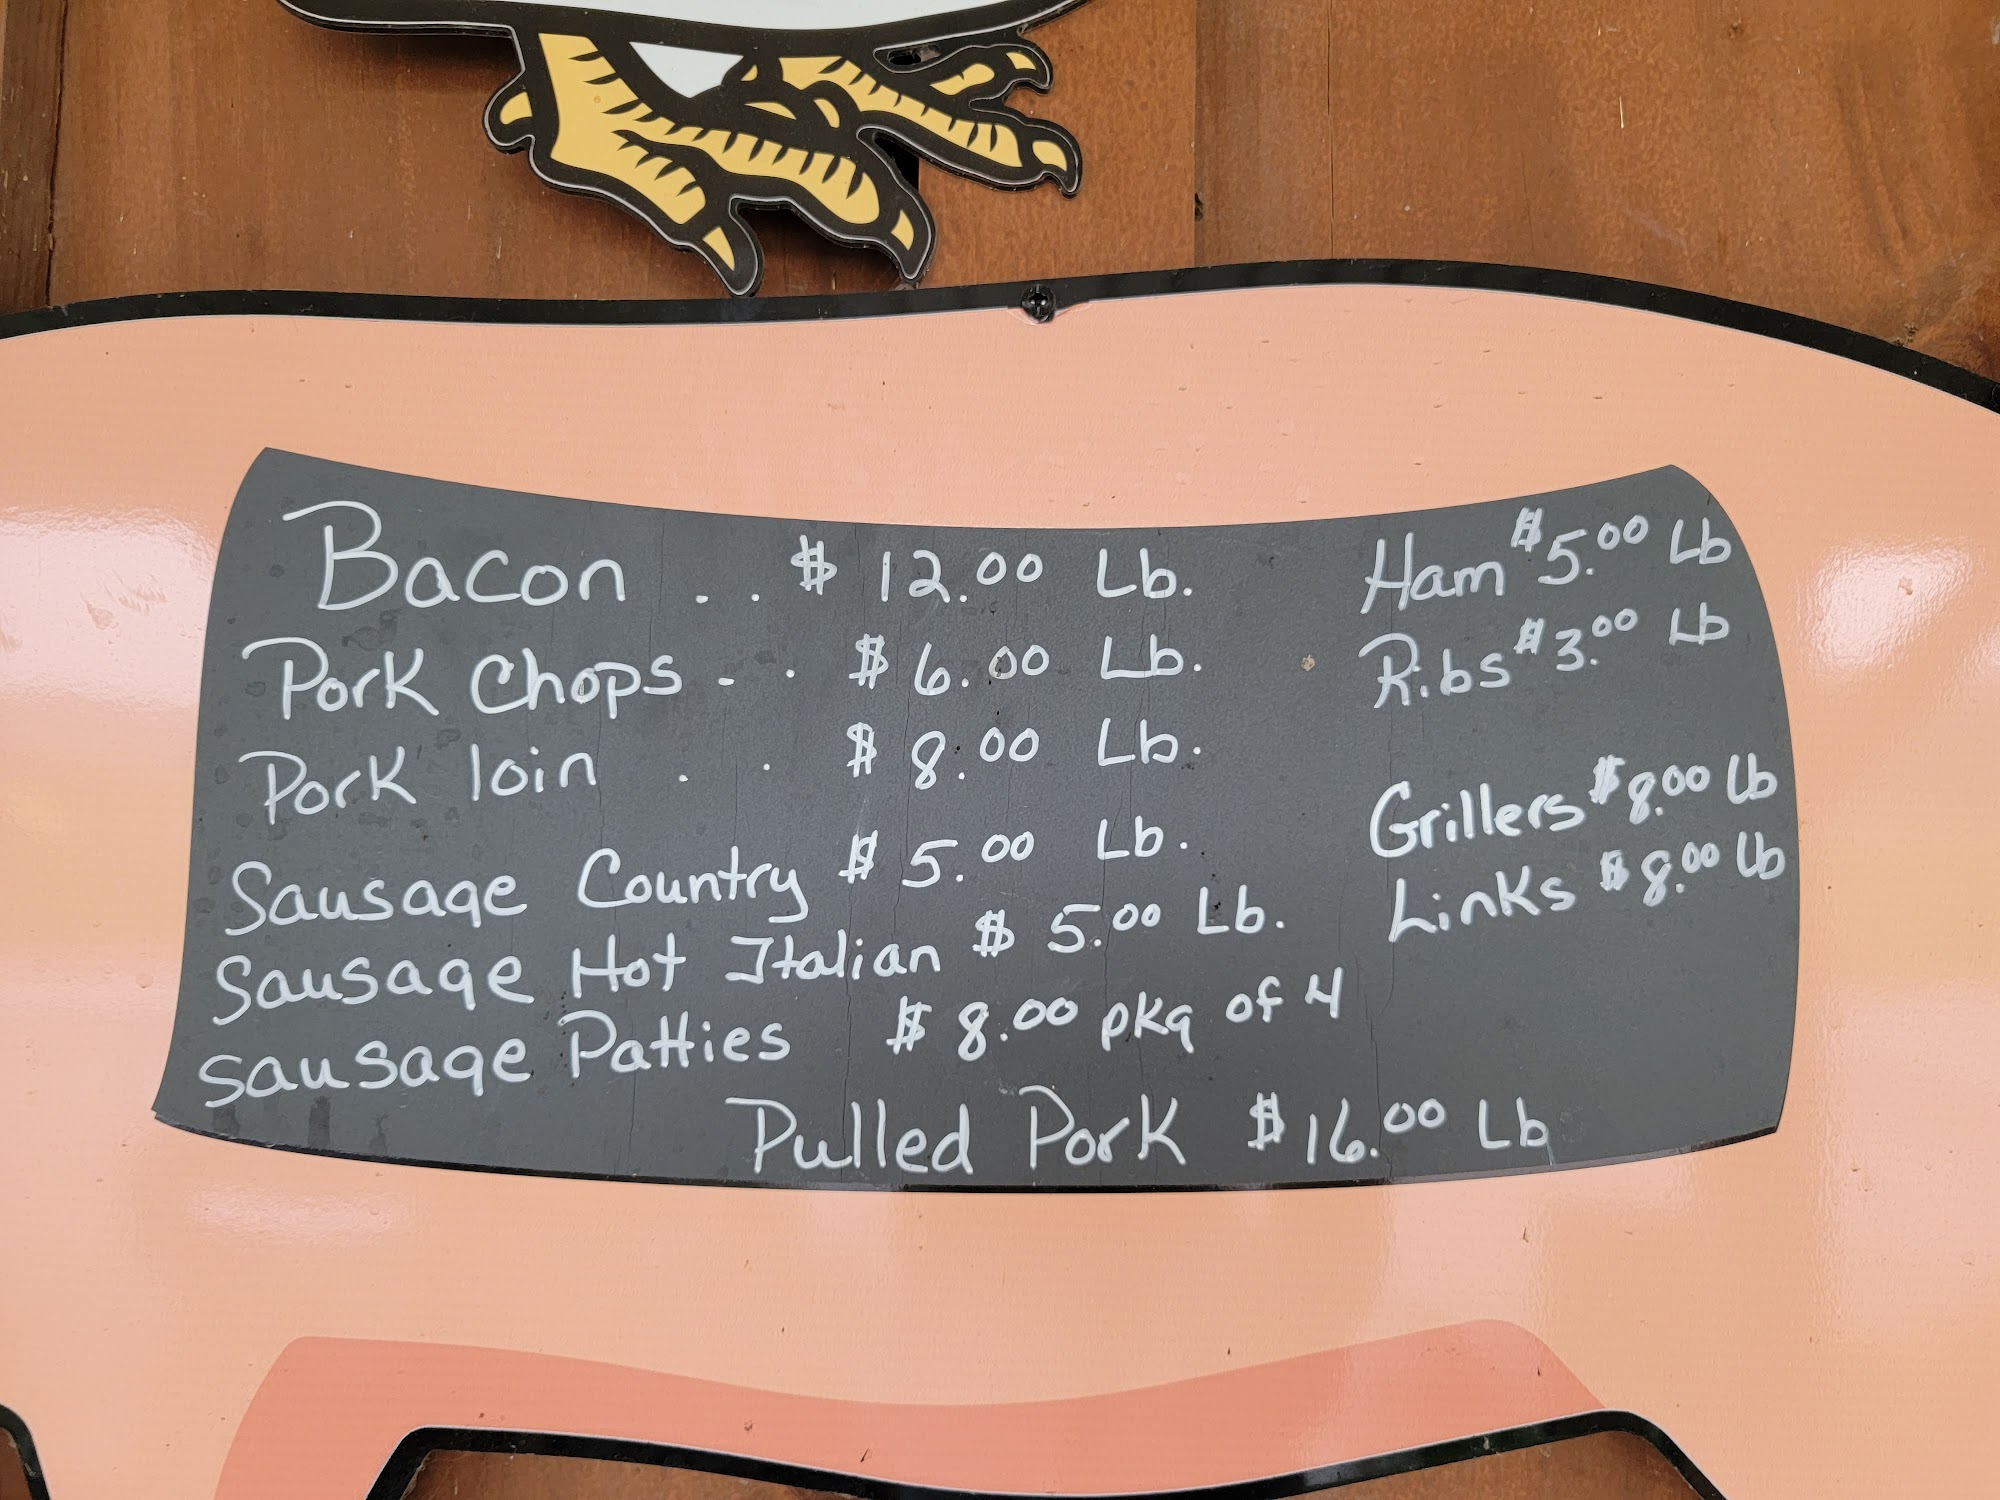 Bacon . . $ 12.00 Lb.
Pork Chops - . $ 6.00 Lb.
Pork loin . . $ 8.00 Lb.
Sausage Country $ 5.00 Lb.
Sausage Hot Italian $ 5.00 Lb.
Sausage Patties $ 8.00 pkg of 4
Pulled Pork $ 16.00 Lb
Ham $5.00 Lb
Ribs $3.00 Lb
Grillers $8.00 Lb
Links $8.00 Lb